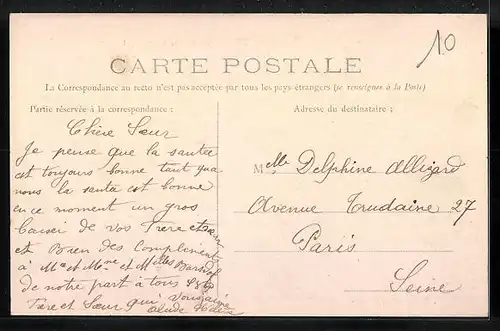 10
CARTE POSTALE
La Correspondance au recto n'est pas acceptée par tous les pays étrangers (se renseigner à la Poste)
Partie réservée à la correspondance :
Adresse du destinataire :
Chère Sœur
Je pense que la santée
est toujours bonne tant qua
nous la santé est bonne
en ce moment un gros
Baiser de vos Frere et Sœur
et Bien des Compliment
à Mr et Mme et Mlles
de notre part à tous
Frere et Sœur qui Vous aime
Melle Delphine Allizard
Avenue Trudaine 27
Paris
Seine